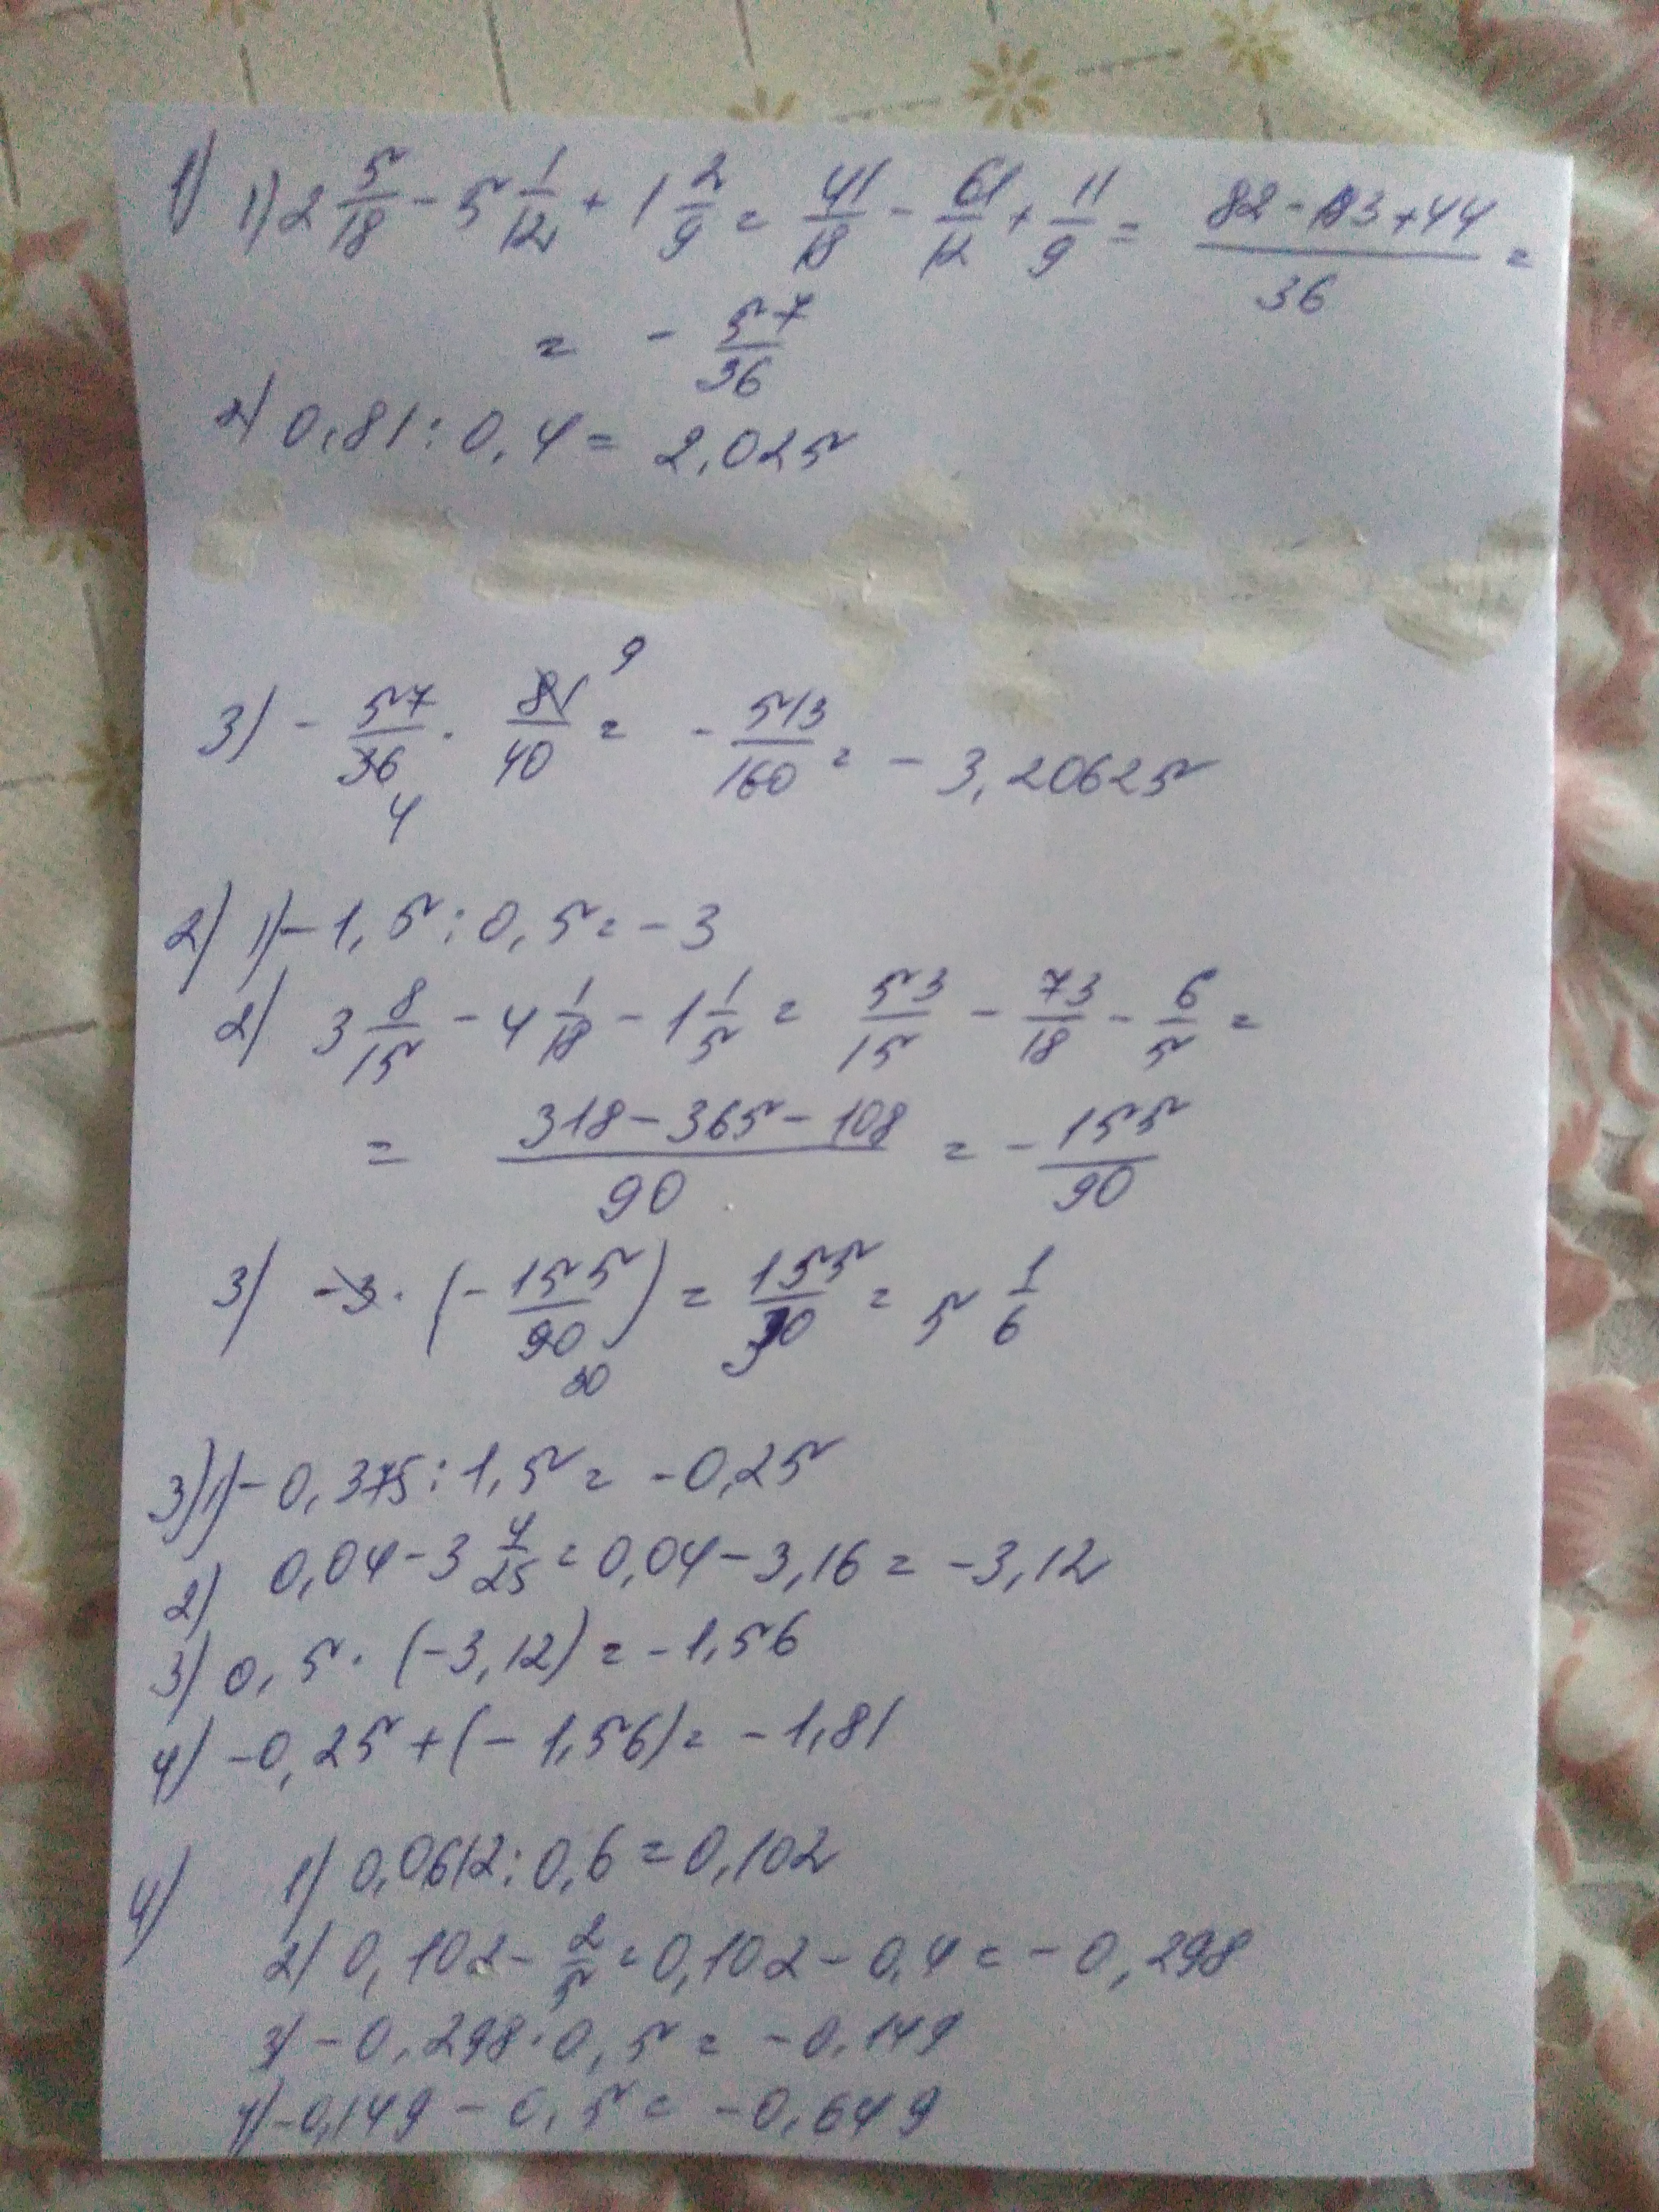 1) 1) 2 5/18 - 5 1/12 + 1 2/9 = 41/18 - 61/12 + 11/9 = (82 - 183 + 44)/36 =
= - 57/36
2) 0,81 : 0,4 = 2,025
3) - 57/36 · 81/40 = - 513/160 = - 3,20625
9
4
2) 1) - 1,5 : 0,5 = - 3
2) 3 8/15 - 4 1/18 - 1 1/5 = 53/15 - 73/18 - 6/5 =
= (318 - 365 - 108)/90 = - 155/90
3) - 3 · (- 155/90) = 155/30 = 5 1/6
30
3) 1) - 0,375 : 1,5 = - 0,25
2) 0,04 - 3 4/25 = 0,04 - 3,16 = - 3,12
3) 0,5 · (- 3,12) = - 1,56
4) - 0,25 + (- 1,56) = - 1,81
4) 1) 0,0612 : 0,6 = 0,102
2) 0,102 - 2/5 = 0,102 - 0,4 = - 0,298
3) - 0,298 · 0,5 = - 0,149
4) - 0,149 - 0,5 = - 0,649